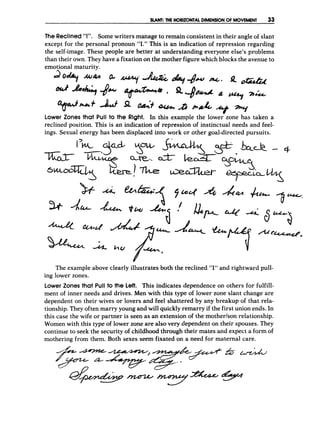 SLANT: THE HORIZONTAL DIMENSION OF MOVEMENT 33
The Reclined "I". Some writers manage to remain consistent in their angle of slant
except for the personal pronoun "I." This is an indication of repression regarding
the self-image. These people are better at understanding everyone else's problems
than their own. They have a fixation on the mother figure which blocks the avenue to
emotional maturity.
Today was a very hectic day for me. I started
out looking for apartments. I found a very nice
apartment but I can't seem to make up my
Lower Zones that Pull to the Right. In this example the lower zone has taken a
reclined position. This is an indication of repression of instinctual needs and feel-
ings. Sexual energy has been displaced into work or other goal-directed pursuits.
I'm glad you finally got back - &
that things are at least going
smoothly here! The weather especially
It is certainly good to hear from you.
It has been too long! Hope all is going
well and that you have completely recovered.
is no fun.
The example above clearly illustrates both the reclined "I" and rightward pull-
ing lower zones.
Lower Zones that Pull to the Left. This indicates dependence on others for fulfill-
ment of inner needs and drives. Men with this type of lower zone slant change are
dependent on their wives or lovers and feel shattered by any breakup of that rela-
tionship. They often marry young and will quickly remarry if the first union ends. In
this case the wife or partner is seen as an extension of the mother/son relationship.
Women with this type of lower zone are also very dependent on their spouses. They
continue to seek the security of childhood through their mates and expect a form of
mothering from them. Both sexes seem fixated on a need for maternal care.
for some reason, maybe just to wish
you a happy day.
Spending more money these days